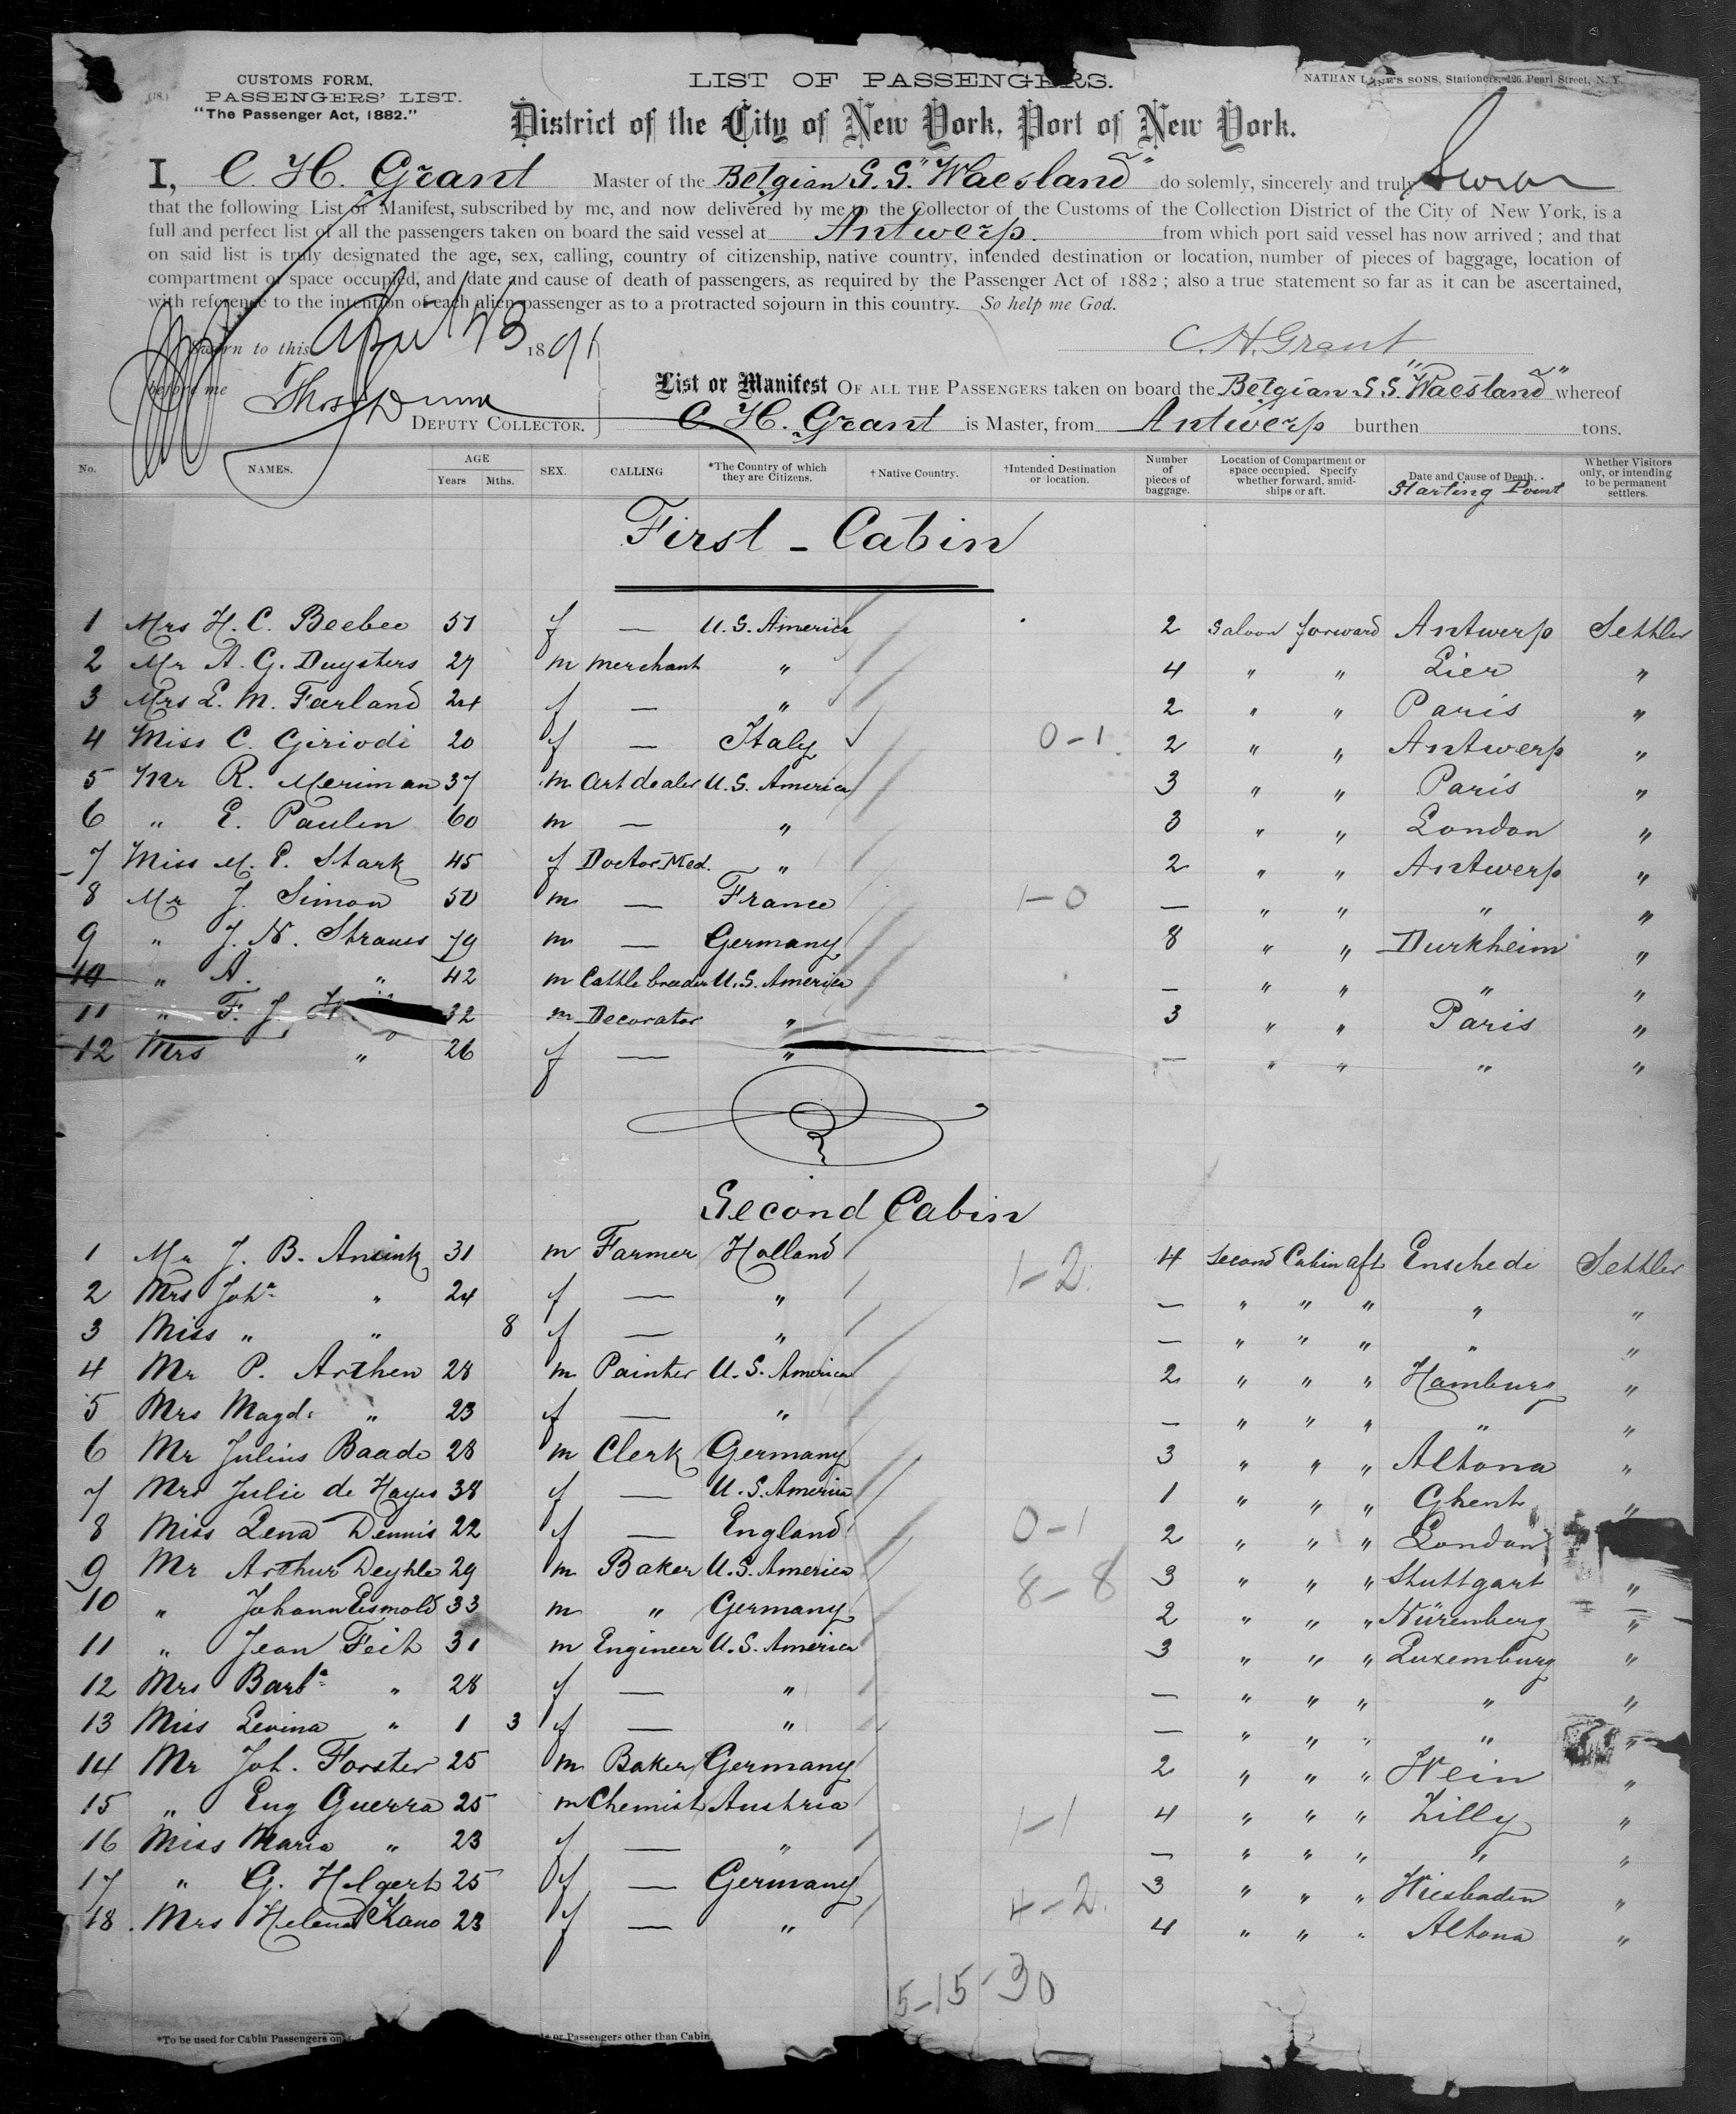 (18.)
CUSTOMS FORM.
PASSENGERS' LIST.
"The Passenger Act, 1882."
LIST OF PASSENGERS.
NATHAN LANE'S SONS, Stationers, 196 Pearl Street, N. Y.
District of the City of New York, Port of New York.
I, C. H. Grant Master of the Belgian S. S. "Waesland" do solemnly, sincerely and truly Swear
that the following List or Manifest, subscribed by me, and now delivered by me to the Collector of the Customs of the Collection District of the City of New York, is a
full and perfect list of all the passengers taken on board the said vessel at Antwerp. from which port said vessel has now arrived; and that
on said list is truly designated the age, sex, calling, country of citizenship, native country, intended destination or location, number of pieces of baggage, location of
compartment or space occupied, and date and cause of death of passengers, as required by the Passenger Act of 1882; also a true statement so far as it can be ascertained,
with reference to the intention of each alien passenger as to a protracted sojourn in this country. So help me God.
Sworn to this April 23 1891
C. H. Grant
before me Thos Dunn
DEPUTY COLLECTOR.
List or Manifest OF ALL THE PASSENGERS taken on board the Belgian S. S. "Waesland" whereof
C. H. Grant is Master, from Antwerp burthen tons.
No. NAMES. AGE Years Mths. SEX. CALLING *The Country of which they are Citizens. † Native Country. †Intended Destination or location. Number of pieces of baggage. Location of Compartment or space occupied. Specify whether forward, amidships or aft. Date and Cause of Death. Starting Point Whether Visitors only, or intending to be permanent settlers.
First - Cabin
1 Mrs H. C. Beebee 57 f — U. S. America 2 Saloon forward Antwerp Settler
2 Mr A. G. Duysters 27 m merchant " 4 " " Lier "
3 Mrs L. M. Farland 24 f — " 2 " " Paris "
4 Miss C. Giriodi 20 f — Italy 0-1 2 " " Antwerp "
5 Mr R. Meriman 37 m Art dealer U. S. America 3 " " Paris "
6 " E. Paulen 60 m — " 3 " " London "
7 Miss M. E. Stark 45 f Doctor Med. " 2 " " Antwerp "
8 Mr J. Simon 50 m — France 1-0 — " " " "
9 " J. N. Strauss 79 m — Germany 8 " " Durkheim "
10 " A. " 42 m Cattle breeder U. S. America — " " " "
11 " F. J. 32 m Decorator " 3 " " Paris "
12 Mrs " 26 f — " — " " " "
Second Cabin
1 Mr J. B. Anink 31 m Farmer Holland 1-2 4 Second Cabin aft Enschede Settler
2 Mrs Joha " 24 f — " — " " " " "
3 Miss " " 8 f — " — " " " " "
4 Mr P. Arthen 28 m Painter U. S. America 2 " " " Hamburg "
5 Mrs Magd. " 23 f — " — " " " " "
6 Mr Julius Baade 28 m Clerk Germany 3 " " " Altona "
7 Mrs Julie de Hayes 38 f — U. S. America 1 " " " Ghent "
8 Miss Lena Dennis 22 f — England 0-1 2 " " " London
9 Mr Arthur Deyhle 29 m Baker U. S. America 8-8 3 " " " Stuttgart "
10 " Johann Eismold 33 m " Germany 2 " " " Nürenberg "
11 " Jean Feit 31 m Engineer U. S. America 3 " " " Luxemburg "
12 Mrs Barba " 28 f — " — " " " " "
13 Miss Levina " 1 3 f — " — " " " " "
14 Mr Joh. Forster 25 m Baker Germany 2 " " " Wein "
15 " Eug Guerra 25 m Chemist Austria 1-1 4 " " " Zilly "
16 Miss Maria " 23 f — " — " " " " "
17 " G. Hilgert 25 f — Germany 3 " " " Wiesbaden "
18 Mrs Helena Kano 23 f — " 4-2 4 " " " Altona "
5-15-30
*To be used for Cabin Passengers only. or Passengers other than Cabin